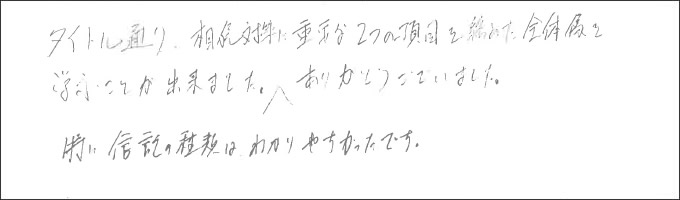 タイトル通り、相続対策に重要な2つの項目を絡めた全体像を
学ぶことが出来ました。ありがとうございました。
特に信託の種類は、わかりやすかったです。